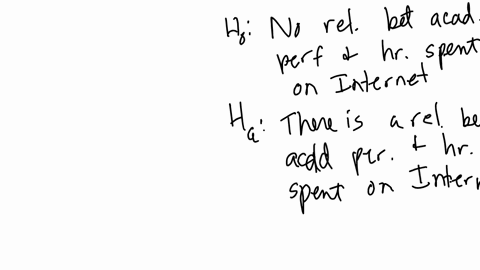 H₀: No rel. bet acad.
perf & hr. spent
on Internet
Hₐ: There is a rel. be
acad per. & hr.
spent on Intern